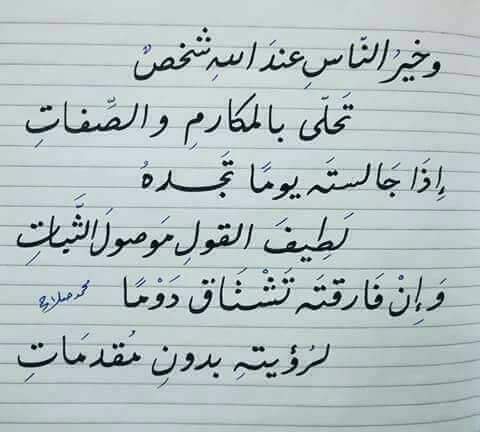 وخيرُ النّاسِ عندَ اللهِ شخصٌ
تَحلّى بالمكارمِ والصِّفاتِ
إِذَا جَالستَه يومًا تَجدهُ
لَطِيفَ القولِ مَوصولَ الثَّباتِ
وَإِنْ فَارقتَه تَشْتَاق دَوْمًا
محمد صلاح
لرُؤيتهِ بدونِ مُقدمَاتِ